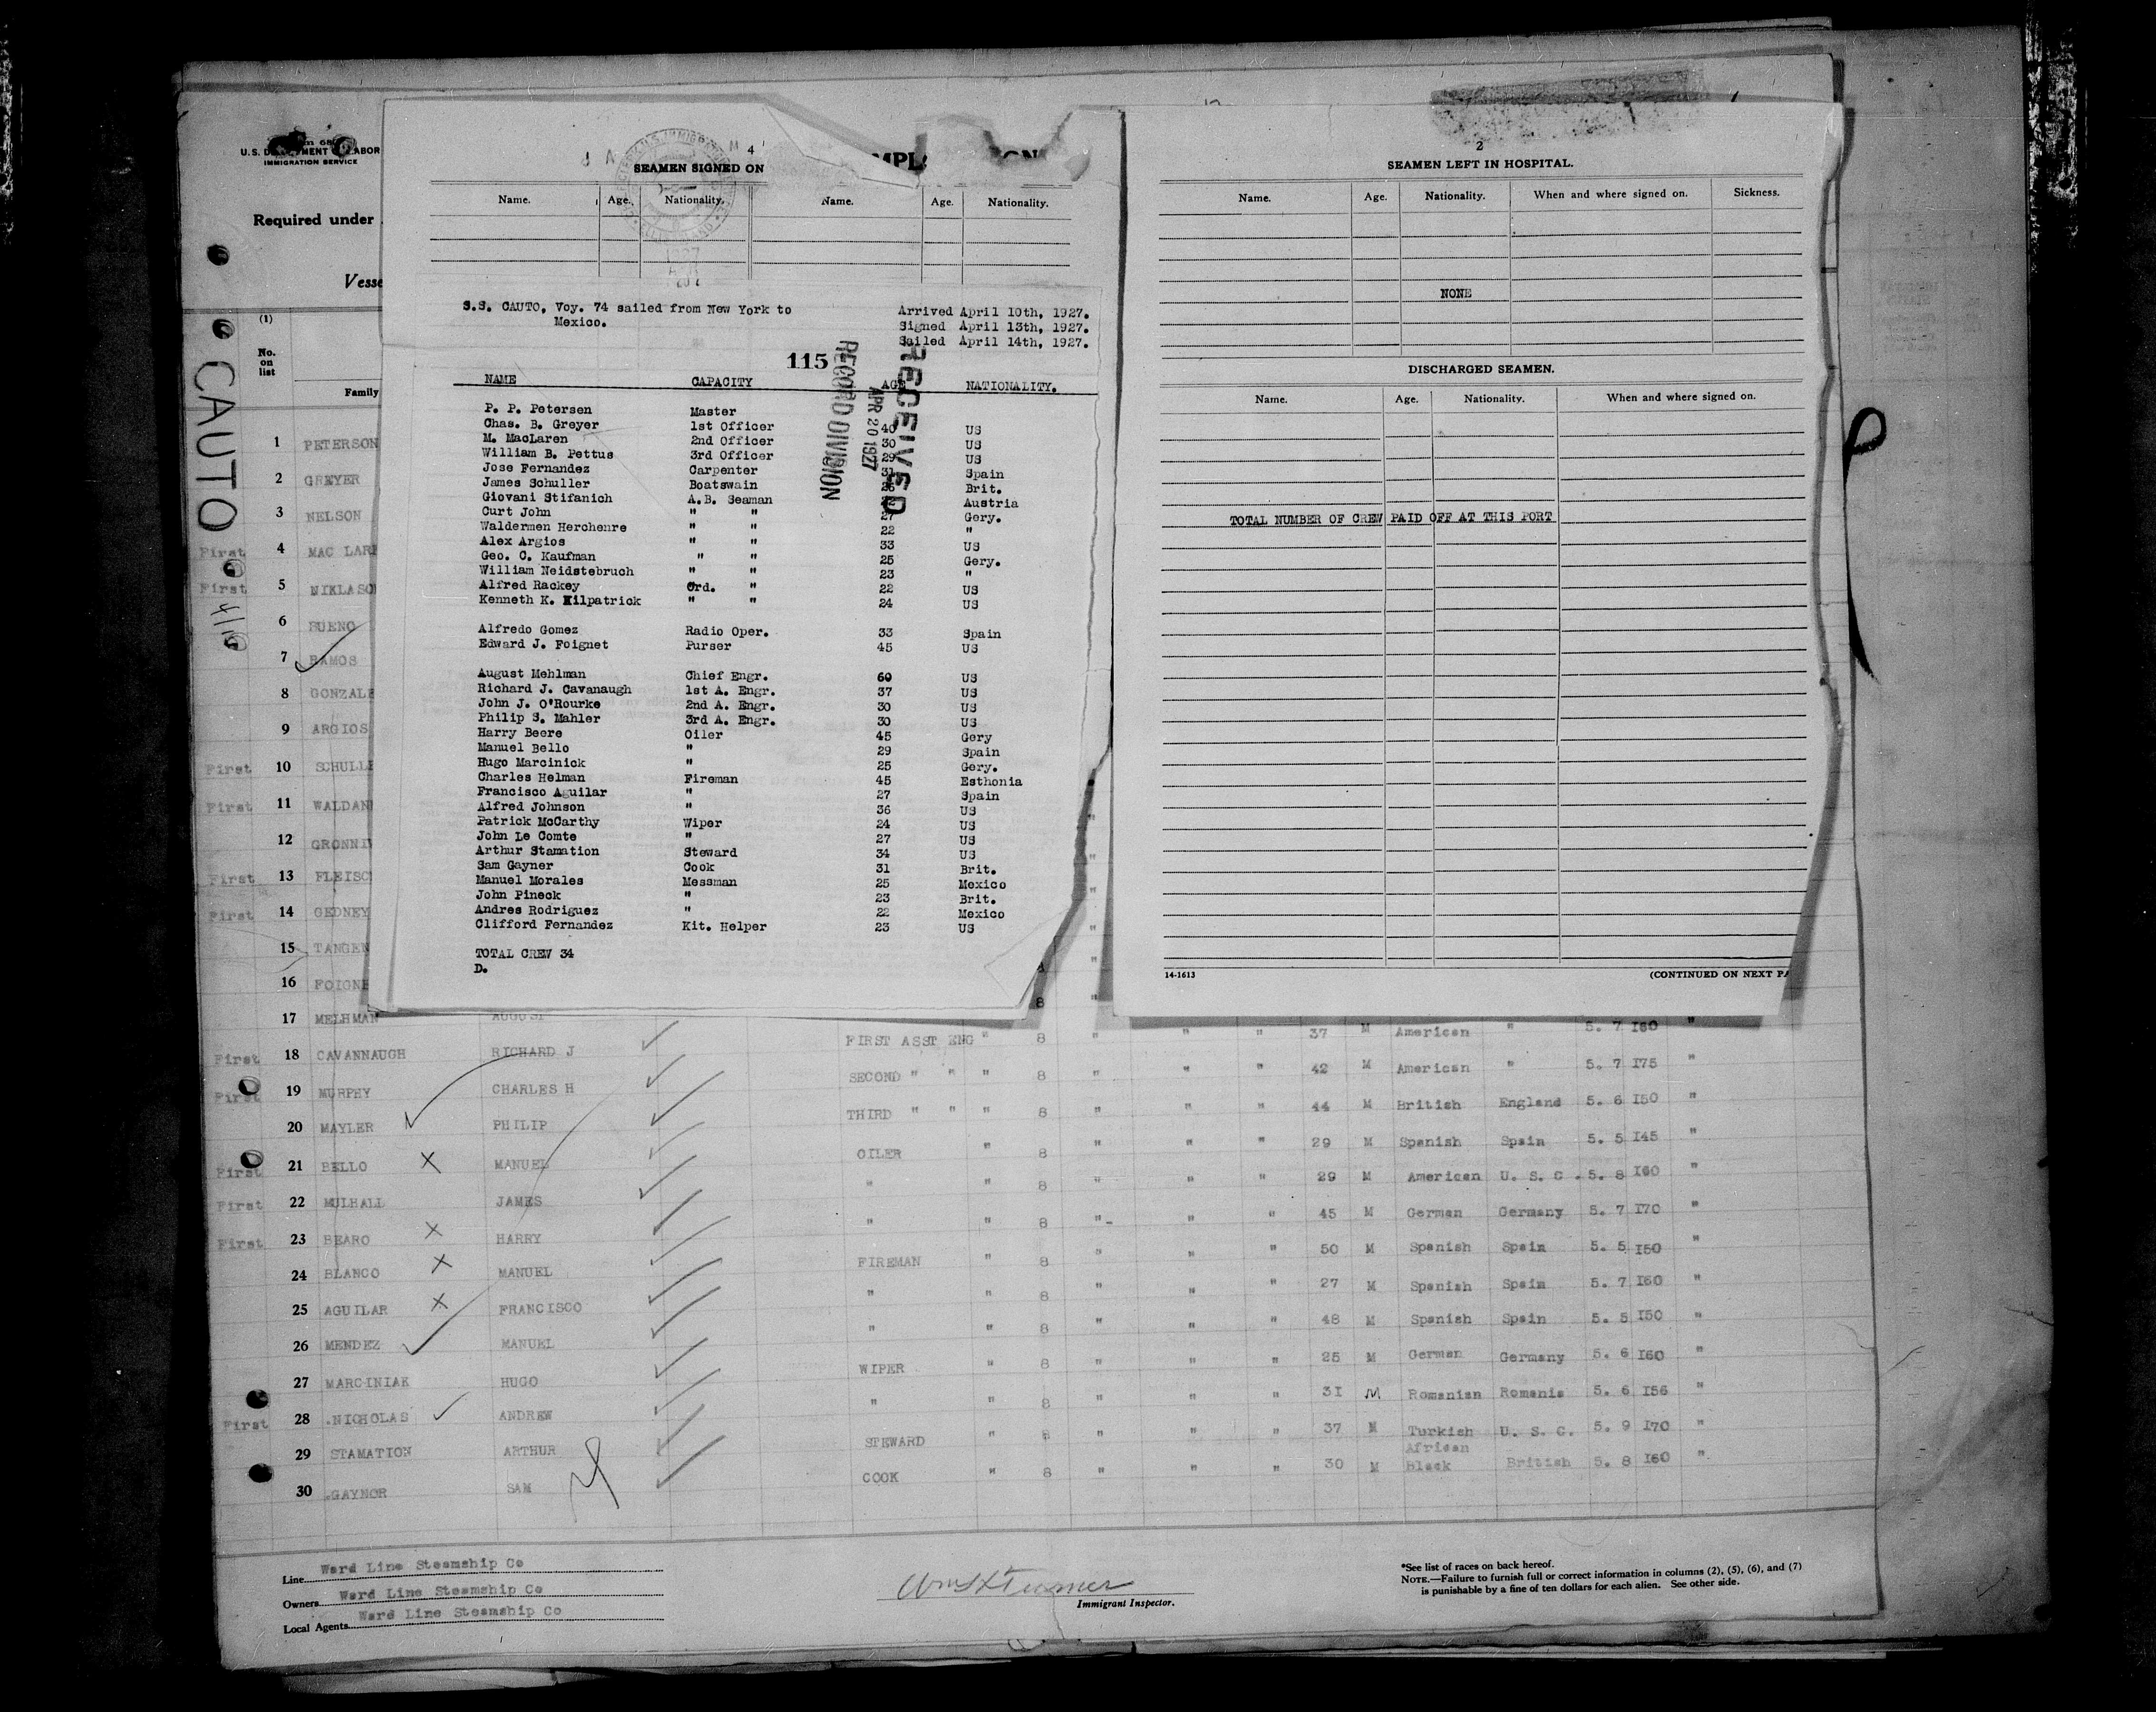 U.S. LABOR
IMMIGRATION SERVICE
Required under
Vesse
(1)
No. on list
Family
CAUTO
1 PETERSON
2 GREYER
3 NELSON
First 4 MAC LARE
First 5 NIKLASON
6 BUENO
7 RAMOS
8 GONZALE
9 ARGIOS
First 10 SCHULLE
First 11 WALDAN
12 GRONNIN
First 13 FLEISC
First 14 GEDNEY
15 TANGEN
16 FOIGNE
4
SEAMEN SIGNED ON
Name. Age. Nationality. Name. Age. Nationality.
1927
APR
S.S. CAUTO, Voy. 74 sailed from New York to Mexico.
Arrived April 10th, 1927.
Signed April 13th, 1927.
Sailed April 14th, 1927.
115
RECEIVED
APR 20 1927
RECORD DIVISION
NAME CAPACITY AGE NATIONALITY.
P. P. Petersen Master
Chas. B. Greyer 1st Officer 40 US
M. MacLaren 2nd Officer 30 US
William B. Pettus 3rd Officer 29 US
Jose Fernandez Carpenter 31 Spain
James Schuller Boatswain Brit.
Giovani Stifanich A.B. Seaman Austria
Curt John " " 27 Gery.
Waldermen Herchenre " " 22 "
Alex Argios " " 33 US
Geo. C. Kaufman " " 25 Gery.
William Neidstebruch " " 23 "
Alfred Rackey Ord. " 22 US
Kenneth K. Kilpatrick " " 24 US
Alfredo Gomez Radio Oper. 33 Spain
Edward J. Foignet Purser 45 US
August Mehlman Chief Engr. 60 US
Richard J. Cavanaugh 1st A. Engr. 37 US
John J. O'Rourke 2nd A. Engr. 30 US
Philip S. Mahler 3rd A. Engr. 30 US
Harry Beere Oiler 45 Gery
Manuel Bello " 29 Spain
Hugo Marcinick " 25 Gery.
Charles Helman Fireman 45 Esthonia
Francisco Aguilar " 27 Spain
Alfred Johnson " 36 US
Patrick McCarthy Wiper 24 US
John Le Comte " 27 US
Arthur Stamation Steward 34 US
Sam Gayner Cook 31 Brit.
Manuel Morales Messman 25 Mexico
John Pineck " 23 Brit.
Andres Rodriguez " 22 Mexico
Clifford Fernandez Kit. Helper 23 US
TOTAL CREW 34
D.
2
SEAMEN LEFT IN HOSPITAL.
Name. Age. Nationality. When and where signed on. Sickness.
NONE
DISCHARGED SEAMEN.
Name. Age. Nationality. When and where signed on.
TOTAL NUMBER OF CREW PAID OFF AT THIS PORT
14-1613
(CONTINUED ON NEXT PA
17 MELHMAN AUGUST
First 18 CAVANNAUGH RICHARD J FIRST ASST ENG " 8 " " " 37 M American " 5. 7 160 "
First 19 MURPHY CHARLES H SECOND " " " 8 " " " 42 M American " 5. 7 175 "
20 MAYLER PHILIP THIRD " " " 8 " " " 44 M British England 5. 6 150 "
First 21 BELLO X MANUEL OILER " 8 " " " 29 M Spanish Spain 5. 5 145 "
First 22 MULHALL JAMES " " 8 " " " 29 M American U. S. C . 5. 8 160 "
First 23 BEARO X HARRY " " 8 " " " 45 M German Germany 5. 7 170 "
24 BLANCO X MANUEL FIREMAN " 8 " " " 50 M Spanish Spain 5. 5 150 "
25 AGUILAR X FRANCISCO " " 8 " " " 27 M Spanish Spain 5. 7 160 "
26 MENDEZ MANUEL " " 8 " " " 48 M Spanish Spain 5. 5 150 "
27 MARCINIAK HUGO WIPER " 8 " " " 25 M German Germany 5. 6 160 "
First 28 .NICHOLAS ANDREW " " 8 " " " 31 M Romanian Romania 5. 6 156 "
29 STAMATION ARTHUR STEWARD " 8 " " " 37 M Turkish U. S. C. 5. 9 170 "
30 .GAYNOR SAM COOK " 8 " " " 30 M African Black British 5. 8 160 "
Line Ward Line Steamship Co
Owners Ward Line Steamship Co
Local Agents Ward Line Steamship Co
Immigrant Inspector.
*See list of races on back hereof.
NOTE.—Failure to furnish full or correct information in columns (2), (5), (6), and (7)
is punishable by a fine of ten dollars for each alien. See other side.